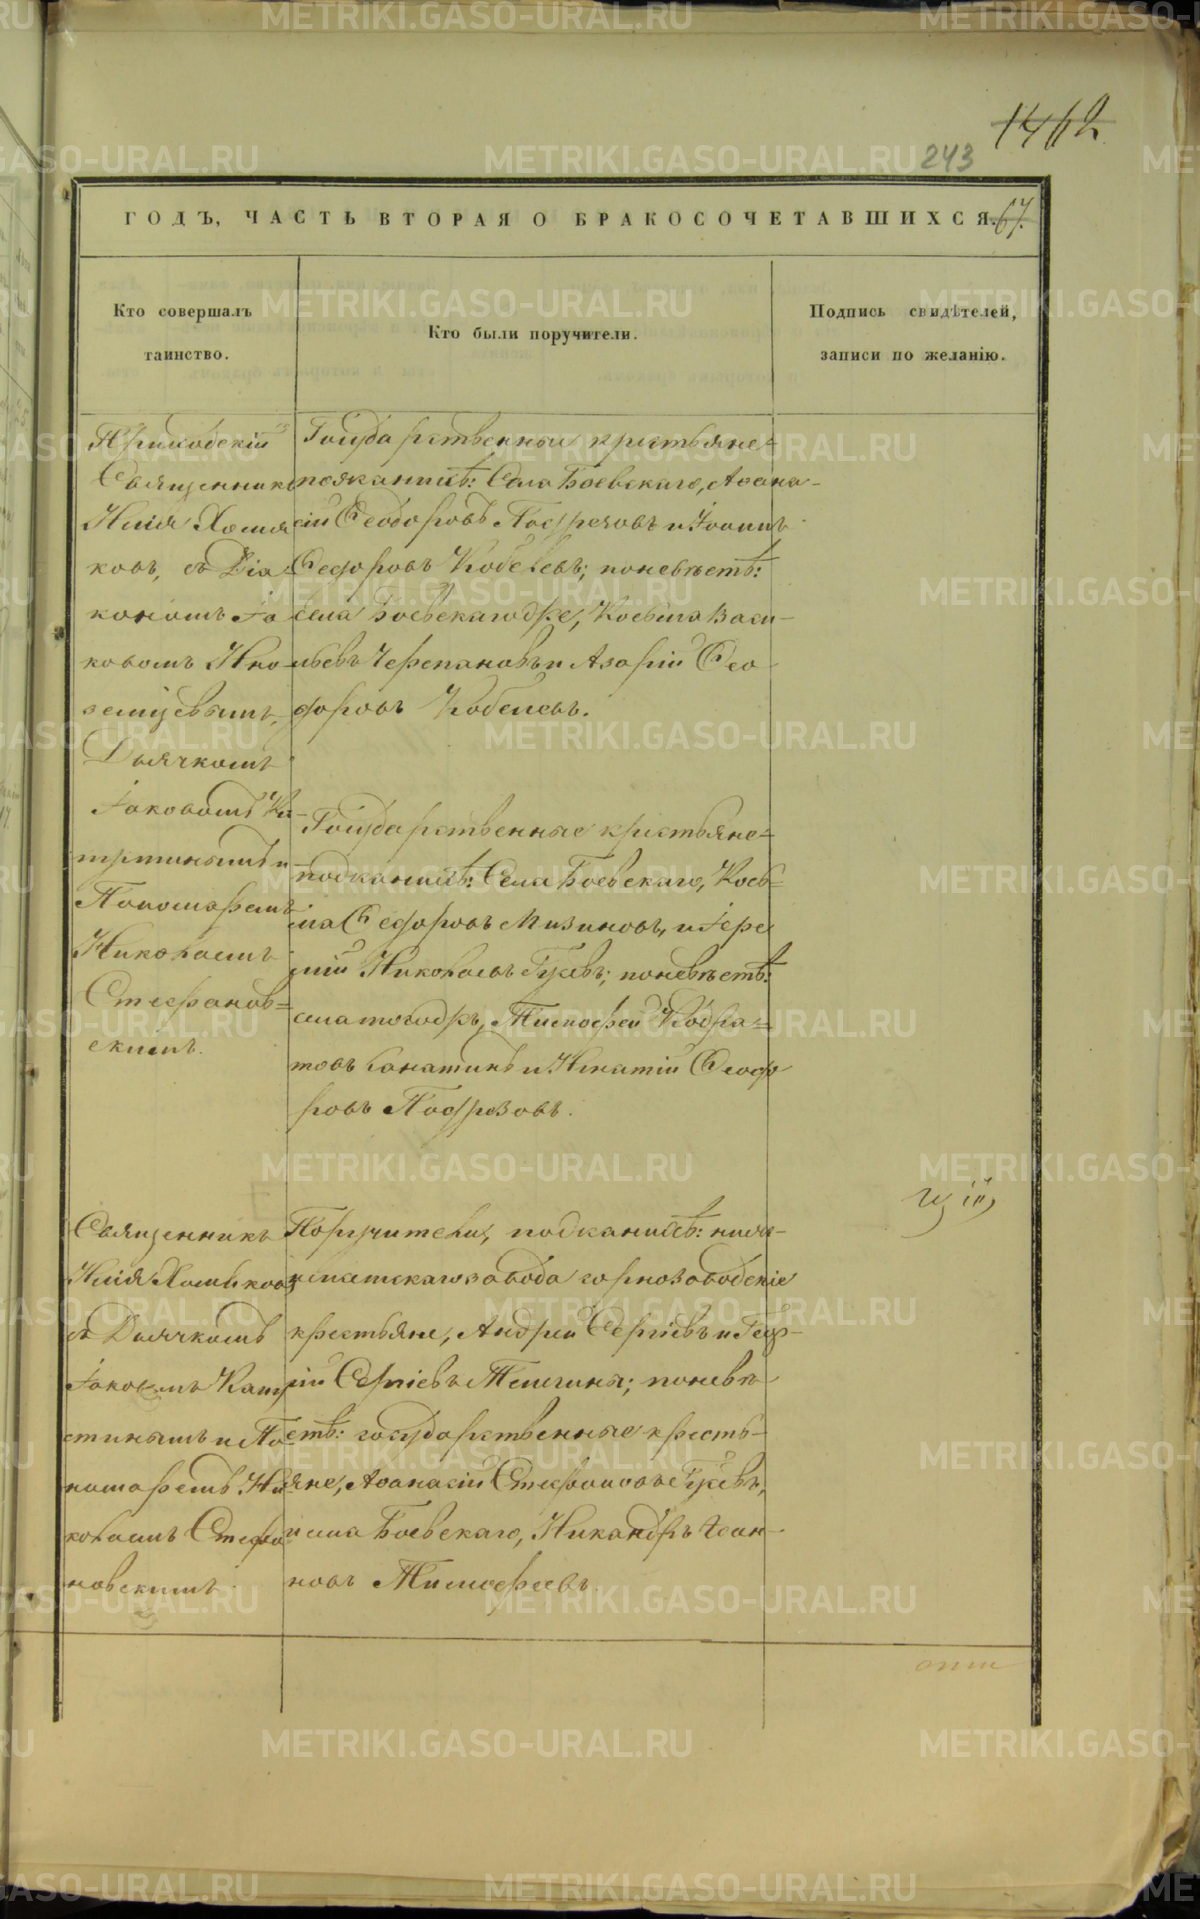 1462
243
ГОДЪ, ЧАСТЬ ВТОРАЯ О БРАКОСОЧЕТАВШИХСЯ.
67.
Кто совершалъ
таинство.
Кто были поручители.
Подпись свидѣтелей,
записи по желанію.
Приходскій
Священникъ
Илія Хомя
ковъ, съ Діа
кономъ Іа
ковомъ Ино
земцевымъ,
Дьячкомъ
Іаковомъ
и
Пономаремъ
Николаемъ
Стефанов=
скимъ.
Государственные крестьяне=
по женихѣ: Села Боевскаго, Афана-
сій Феодоровъ и Іоаннъ
Феодоровъ Кобелевъ; по невѣстѣ:
села Боевскаго же, Косьма Васи-
льевъ Черепановъ и Азарій Фео
доровъ Кобелевъ.
Государственные крестьяне=
по женихѣ: Села Боевскаго, Козь=
ма Феодоровъ Мизиновъ, и Іере
мій Николаевъ Гусевъ; по невѣстѣ:
села того же, Тимофей Кодра=
товъ и Игнатій Феодо
ровъ
Священникъ
Илія Хомяковъ
съ Дьячкомъ
Іаковомъ
и По
номаремъ Ни
колаемъ Стефа
новскимъ.
Поручители, по женихѣ: нижне-
исетскаго завода горнозаводскіе
крестьяне, Андрей Сергіевъ и Геор-
гій Сергіевъ; по невѣ
стѣ: государственные кресть-
яне, Афанасій Стефановъ Гусевъ,
и села Боевскаго, Никандръ Іоан-
новъ Тимофеевъ.
METRIKI.GASO-URAL.RU